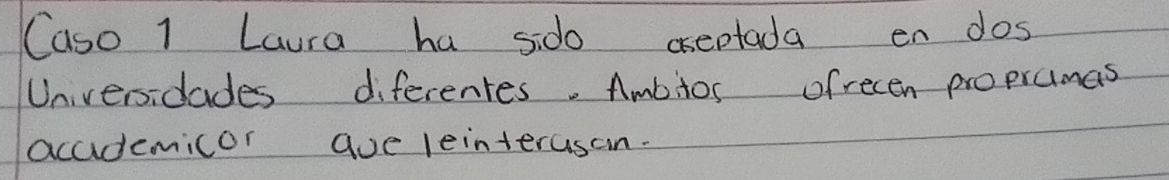 Caso 1 Laura ha sido aseptada en dos
Universidades diferentes. Ambitos ofrecen propramas
academicor que le interasan.